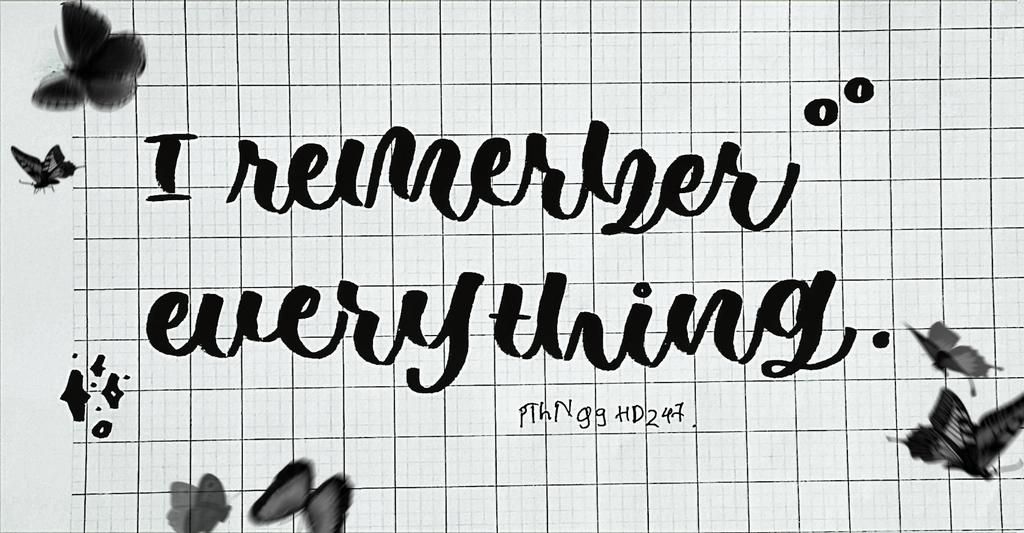 I remerber
everything.
PThNgg HD247.